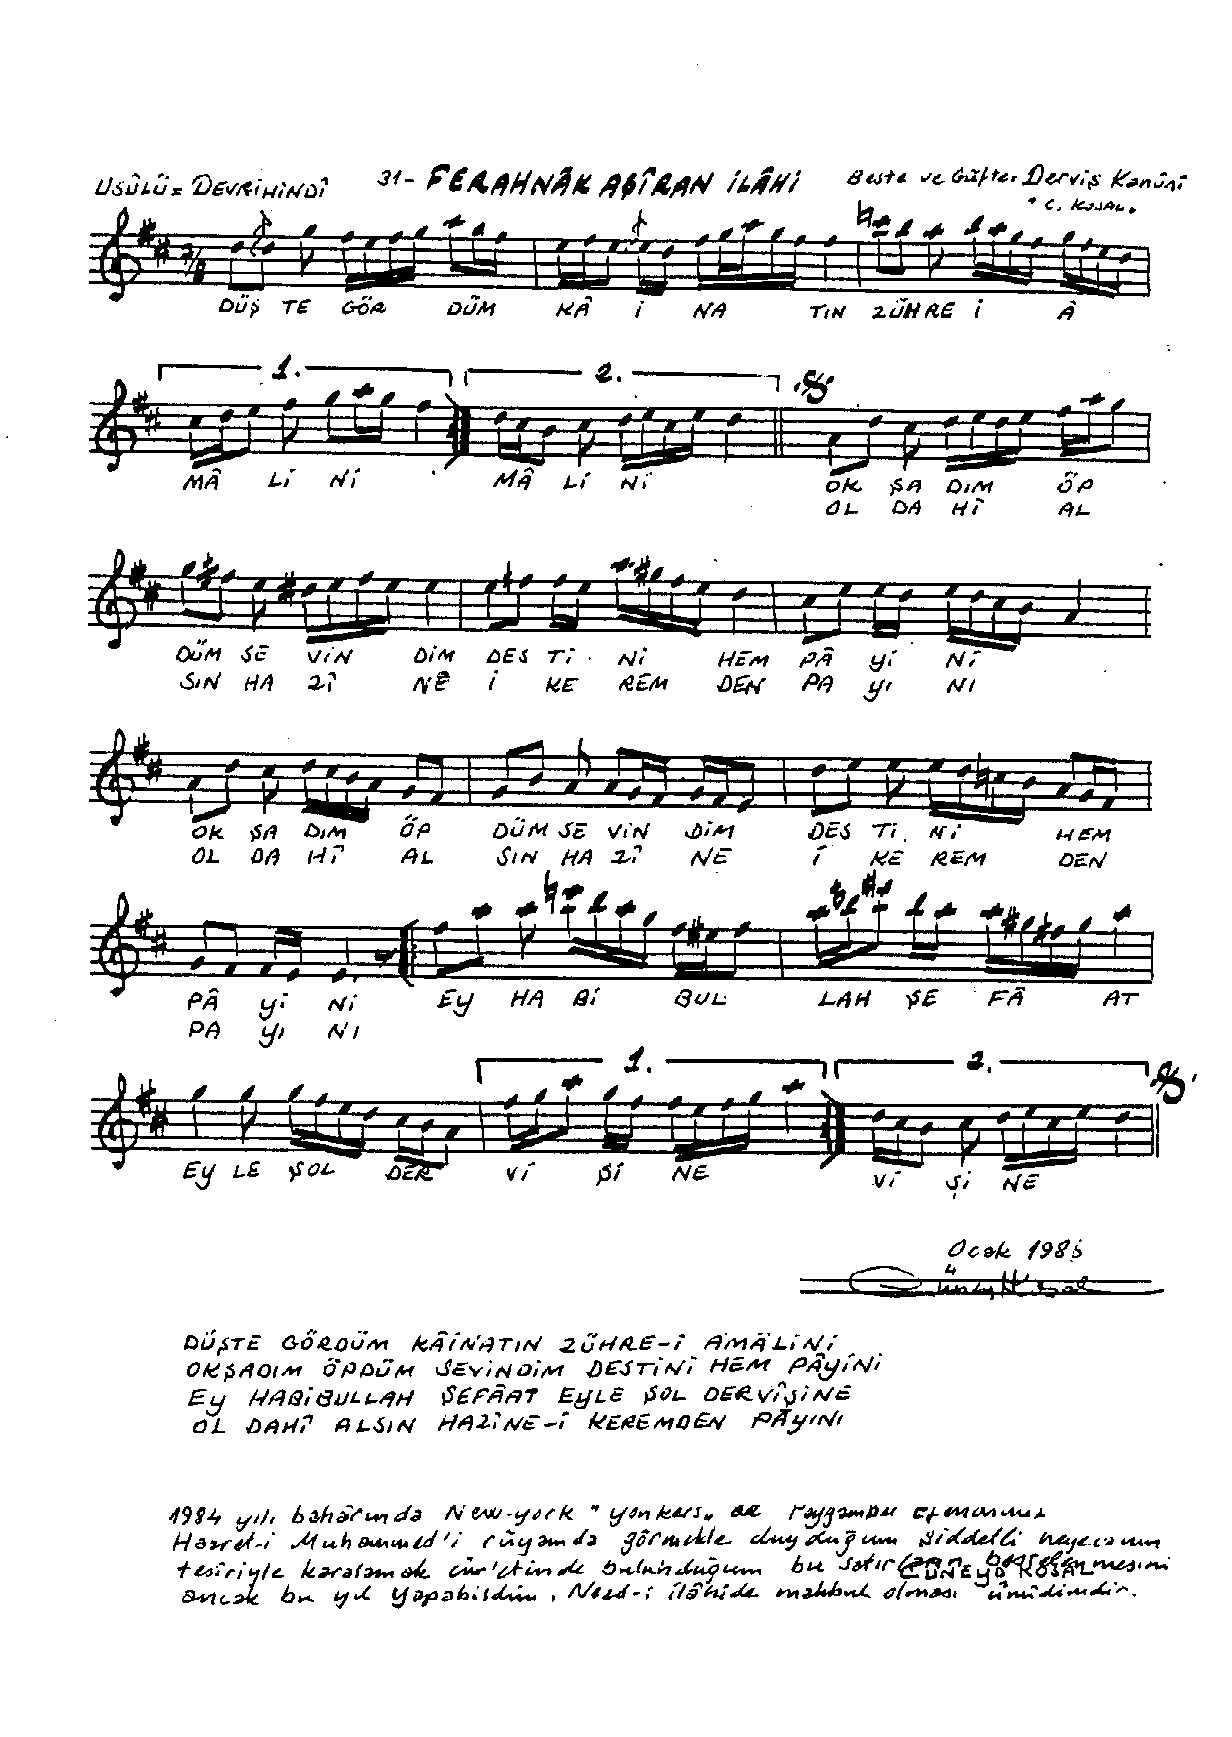 USÛLÜ= DEVRİHİNDÎ 31- FERAHNÂK AŞÎRAN İLÂHİ Beste ve Güfte: Derviş Kanûnî
"C. KOSAL"
7/8
DÜŞ TE GÖR DÜM KÂ İ NA TIN ZÜHRE İ Â
1. 2.
MÂ Lİ Nİ MÂ Lİ Nİ OK ŞA DIM ÖP
OL DA HÎ AL
DÜM SE VİN DİM DES Tİ Nİ HEM PÂ Yİ Nİ
SIN HA ZÎ NE İ KE REM DEN PA YI NI
OK ŞA DIM ÖP DÜM SE VİN DİM DES Tİ Nİ HEM
OL DA HÎ AL SIN HA ZÎ NE İ KE REM DEN
PÂ Yİ Nİ EY HA Bİ BUL LAH ŞE FÂ AT
PA YI NI
1. 2.
EY LE ŞOL DER Vİ Şİ NE Vİ Şİ NE
Ocak 1985
DÜŞTE GÖRDÜM KÂİNATIN ZÜHRE-İ ÂMÂLİNİ
OKŞADIM ÖPDÜM SEVİNDİM DESTİNİ HEM PÂYİNİ
EY HABİBULLAH ŞEFÂAT EYLE ŞOL DERVÎŞİNE
OL DAHÎ ALSIN HAZÎNE-İ KEREMDEN PÂYINI
1984 yılı bahârında New-york "yonkers" de Peygamber Efendimiz
Hazret-i Muhammed'i rüyamda görmekle duyduğum şiddetli heyecanın
tesiriyle karalamak cür'etinde bulunduğum bu satırların bestelenmesini
CÜNEYD KOSAL
ancak bu yıl yapabildim. Nezd-i ilâhîde makbul olması ümidimdir.